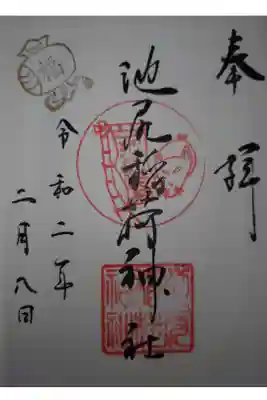 奉拝
池尻稲荷神社
令和二年
二月八日